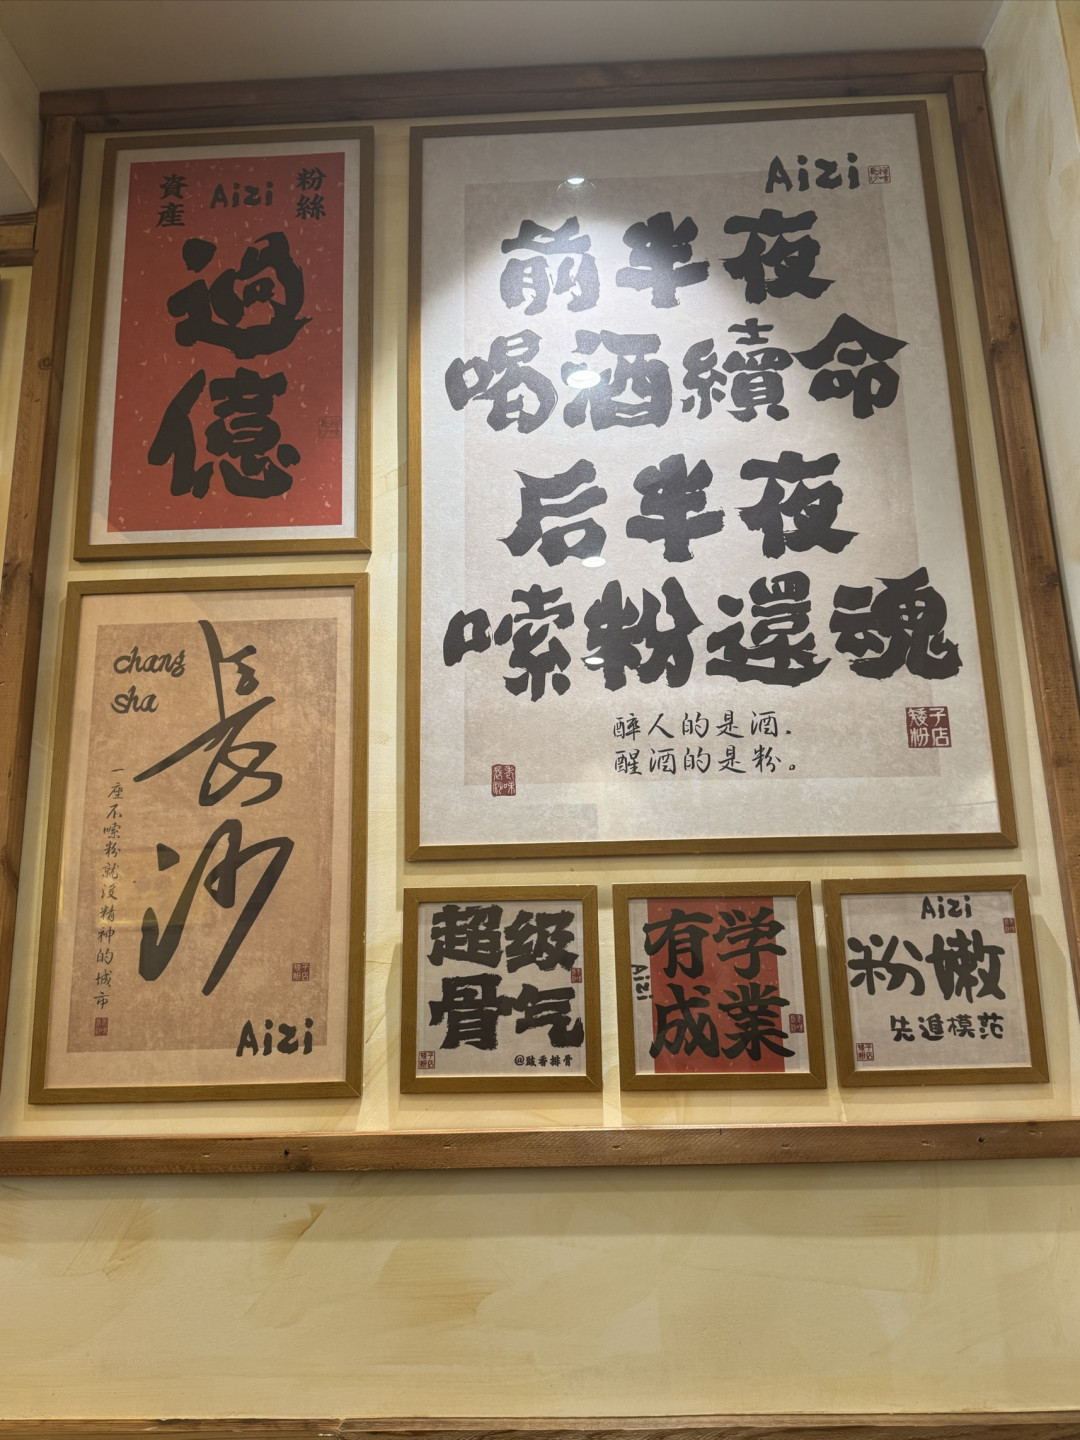 資產 Aizi 粉絲
過億
Aizi
前半夜
喝酒續命
后半夜
嗦粉還魂
醉人的是酒.
醒酒的是粉。
矮子粉店
chang
sha
長沙
一座不嗦粉就没精神的城市
矮子粉店
Aizi
超级
骨气
矮子粉店
@豉香排骨
有学
成業
Aizi
Aizi
粉嫩
先進模范
矮子粉店